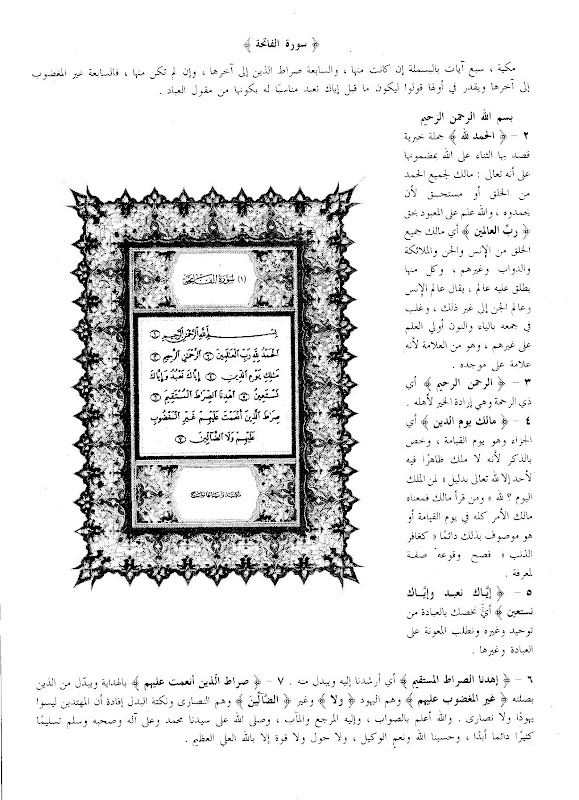 ﴿ سورة الفاتحة ﴾
مكية ، سبع آيات بالبسملة إن كانت منها ، والسابعة صراط الذين إلى آخرها ، وإن لم تكن منها ، فالسابعة غير المغضوب
إلى آخرها ويقدر في أولها قولوا ليكون ما قبل إياك نعبد مناسبًا له بكونها من مقول العباد .
بسم الله الرحمن الرحيم
٢ – ﴿ الحمد لله ﴾ جملة خبرية
قصد بها الثناء على الله بمضمونها
على أنه تعالى : مالك لجميع الحمد
من الخلق أو مستحق لأن
يحمدوه ، والله علم على المعبود بحق
﴿ ربِّ العالمين ﴾ أي مالك جميع
الخلق من الإنس والجن والملائكة
والدواب وغيرهم ، وكل منها
يطلق عليه عالم ، يقال عالم الإنس
وعالم الجن إلى غير ذلك ، وغلب
في جمعه بالياء والنون أولي العلم
على غيرهم ، وهو من العلامة لأنه
علامة على موجده .
٣ – ﴿ الرحمن الرحيم ﴾ أي
ذي الرحمة وهي إرادة الخير لأهله .
٤ – ﴿ مالك يوم الدين ﴾ أي
الجزاء وهو يوم القيامة ، وخص
بالذكر لأنه لا ملك ظاهرًا فيه
لأحد إلا لله تعالى بدليل « لمن الملك
اليوم ؟ لله » ومن قرأ مالك فمعناه
مالك الأمر كله في يوم القيامة أو
هو موصوف بذلك دائمًا « كغافر
الذنب » فصح وقوعه صفة
لمعرفة .
٥ – ﴿ إيّاك نعبد وإيّاك
نستعين ﴾ أي نخصك بالعبادة من
توحيد وغيره ونطلب المعونة على
العبادة وغيرها .
(١) سُورَةُ الفَاتِحَة
بِسْمِ اللَّهِ الرَّحْمَنِ الرَّحِيمِ ١
الْحَمْدُ لِلَّهِ رَبِّ الْعَالَمِينَ ٢ الرَّحْمَنِ الرَّحِيمِ ٣
مَالِكِ يَوْمِ الدِّينِ ٤ إِيَّاكَ نَعْبُدُ وَإِيَّاكَ
نَسْتَعِينُ ٥ اهْدِنَا الصِّرَاطَ الْمُسْتَقِيمَ ٦
صِرَاطَ الَّذِينَ أَنْعَمْتَ عَلَيْهِمْ غَيْرِ الْمَغْضُوبِ
عَلَيْهِمْ وَلَا الضَّالِّينَ ٧
٦ – ﴿ إهدنا الصراط المستقيم ﴾ أي أرشدنا إليه ويبدل منه . ٧ – ﴿ صراط الَّذين أنعمت عليهم ﴾ بالهداية ويبدّل من الذين
بصلته ﴿ غير المغضوب عليهم ﴾ وهم اليهود ﴿ ولا ﴾ وغير ﴿ الضَّالِّينَ ﴾ وهم النصارى ونكتة البدل إفادة أن المهتدين ليسوا
يهودًا ولا نصارى . والله أعلم بالصواب ، وإليه المرجع والمآب ، وصلى الله على سيدنا محمد وعلى آله وصحبه وسلم تسليمًا
كثيرًا دائما أبدًا ، وحسبنا الله ونعم الوكيل ، ولا حول ولا قوة إلا بالله العلي العظيم .